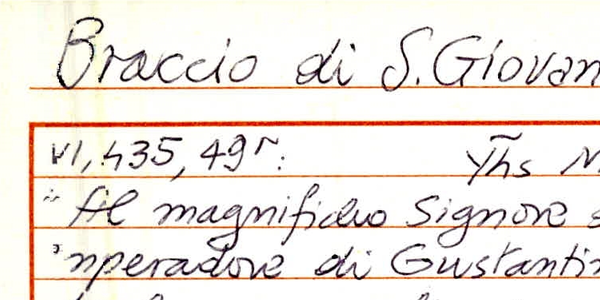 Braccio di S. Giovan
VI, 435, 49r: Yhs
"Al magnificho Signore
inperadore di Gustantin